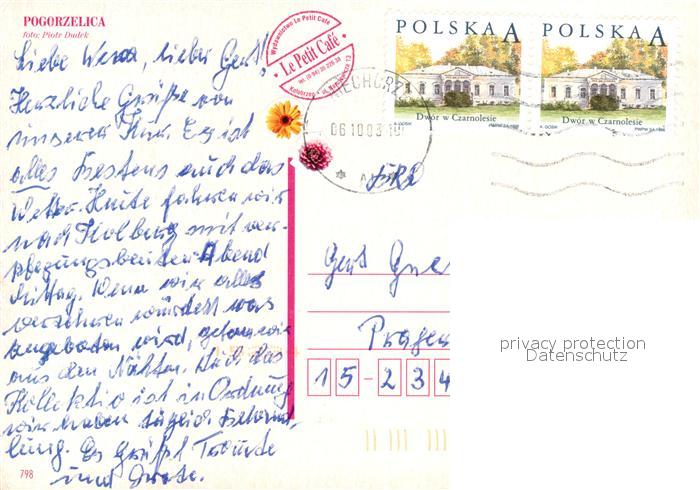 POGORZELICA
foto: Piotr Dudek
Liebe Wera, lieber Gert!
Herzliche Grüße von
unserer Kur. Es ist
alles bestens auch das
Wetter. Heute fahren wir
nach Kolberg mit ver-
pflegungsbeutel Abend
Mittag. Wenn wir alles
verzehren würden was
angeboten wird, gehen wir
aus den Nähten. Auch das
Kollektiv ist in Ordnung
wir haben täglich Behand-
lung. Es grüßt Traute
und
798
Wydawnictwo Le Petit Café
Le Petit Café
Kołobrzeg
POLSKA A
Dwór w Czarnolesie
POLSKA A
Dwór w Czarnolesie
06 10 03
BRD
Gert
Prager
15-234
privacy protection
Datenschutz